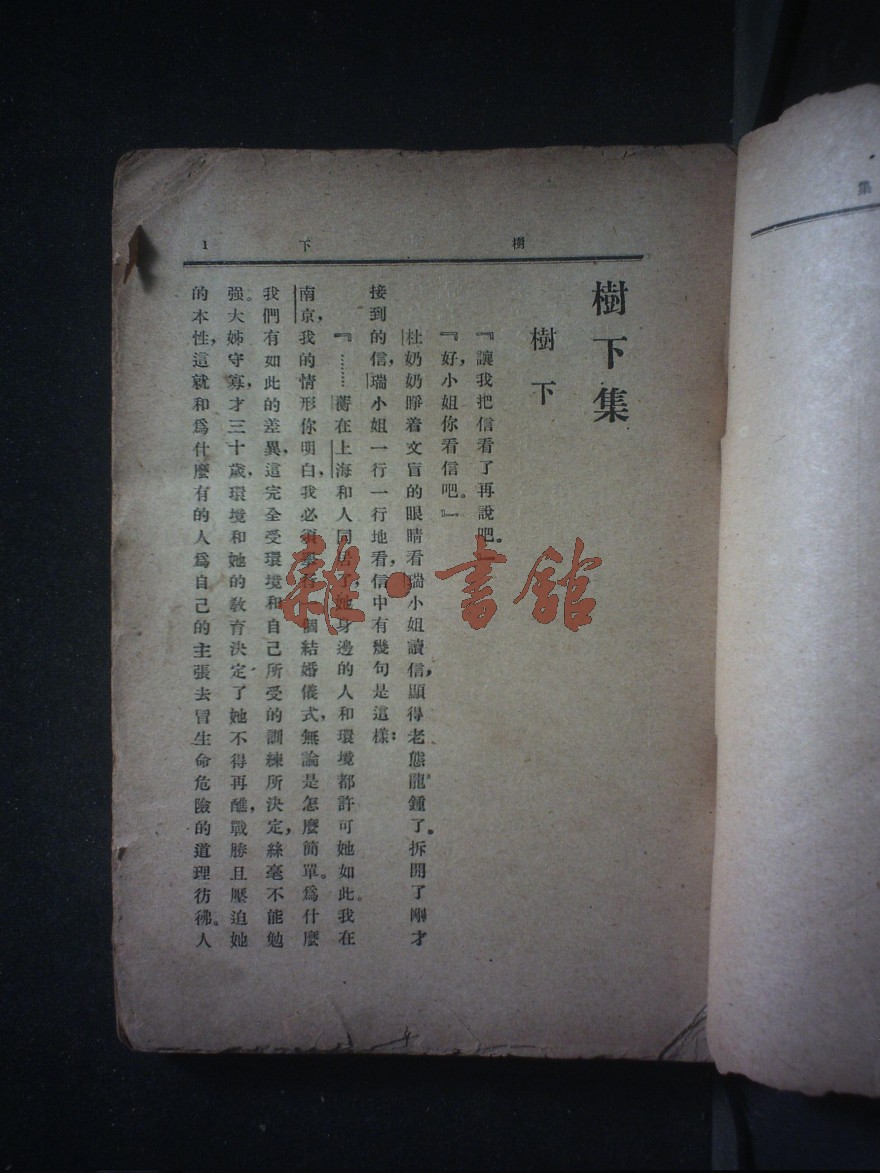 集
樹下 1
樹下集
樹下
『讓我把信看了再說吧。』
『好，小姐你看信吧。』
杜奶奶睜着文盲的眼睛看瑞小姐讀信，顯得老態龍鍾了。拆開了剛才
接到的信，瑞小姐一行一行地看，信中有幾句是這樣：
『……蘅在上海和人同居了，她身邊的人和環境都許可她如此。我在
南京，我的情形你明白，我必須個結婚儀式，無論是怎麼簡單。爲什麼
我們有如此的差異，這完全受環境和自己所受的訓練所決定，絲毫不能勉
强。大姊守寡，才三十歲，環境和她的教育決定了她不得再醮，戰勝且壓迫她
的本性，這就和爲什麼有的人爲自己的主張去冒生命危險的道理彷彿。人
雜·書館